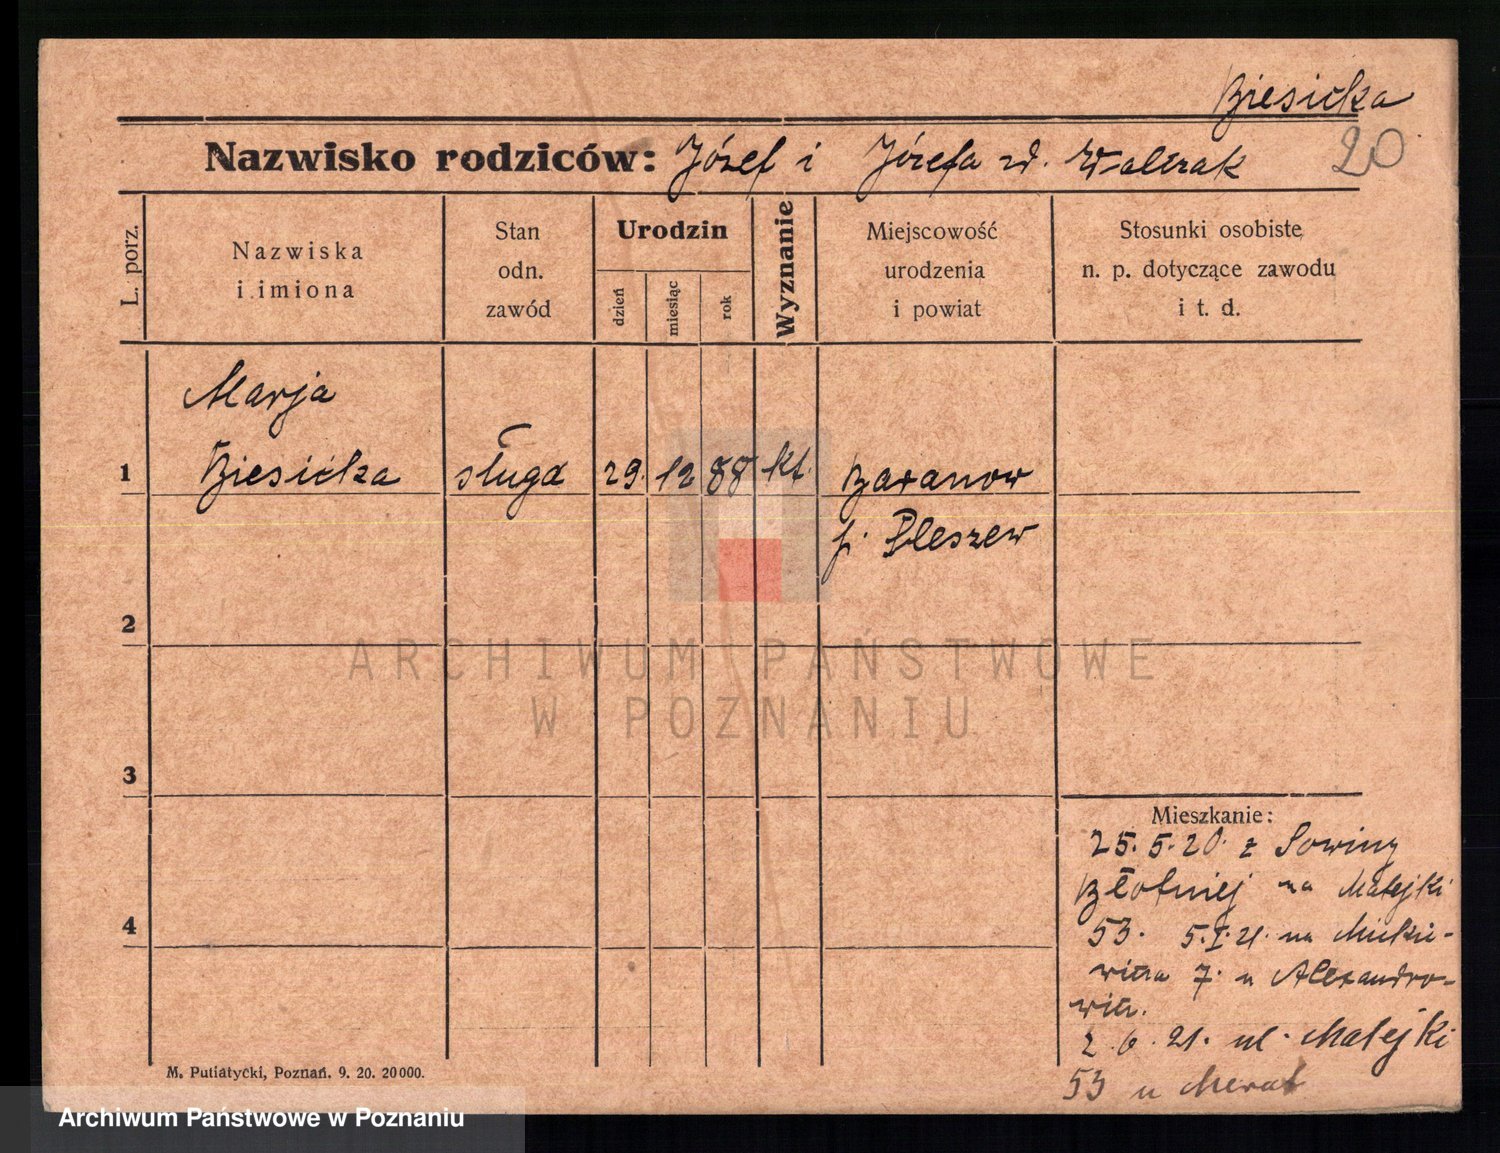 Biesicka
20
Nazwisko rodziców: Józef i Józefa zd. Walczak
L. porz.
Nazwiska
i imiona
Stan
odn.
zawód
Urodzin
dzień
miesiąc
rok
Wyznanie
Miejscowość
urodzenia
i powiat
Stosunki osobiste
n. p. dotyczące zawodu
i t. d.
Marja
1 Biesicka sługa 29. 12 88 kt. Baranow
p. Pleszew
2
ARCHIWUM PAŃSTWOWE
W POZNANIU
3
Mieszkanie:
25. 5. 20. z Sowiny
Błotniej na Matejki
4
53. 5. I. 21. na Mickie-
wicza 7. u Alexandro-
wicz.
2. 6. 21. ul. Matejki
53 u
M. Putiatycki, Poznań. 9. 20. 20000.
Archiwum Państwowe w Poznaniu